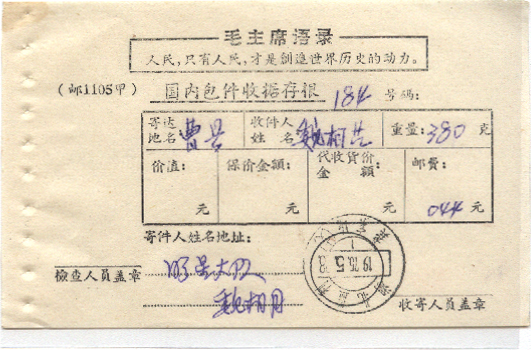 毛主席语录
人民,只有人民,才是创造世界历史的动力。
(邮1105甲) 国内包件收据存根 184 号码:
寄达地名 曹县 收件人姓名 魏相兰 重量:380 克
价值: 元 保价金额: 元 代收货价金额: 元 邮费: 044 元
寄件人姓名地址:
明星大队
魏相月
檢查人员盖章
收寄人员盖章